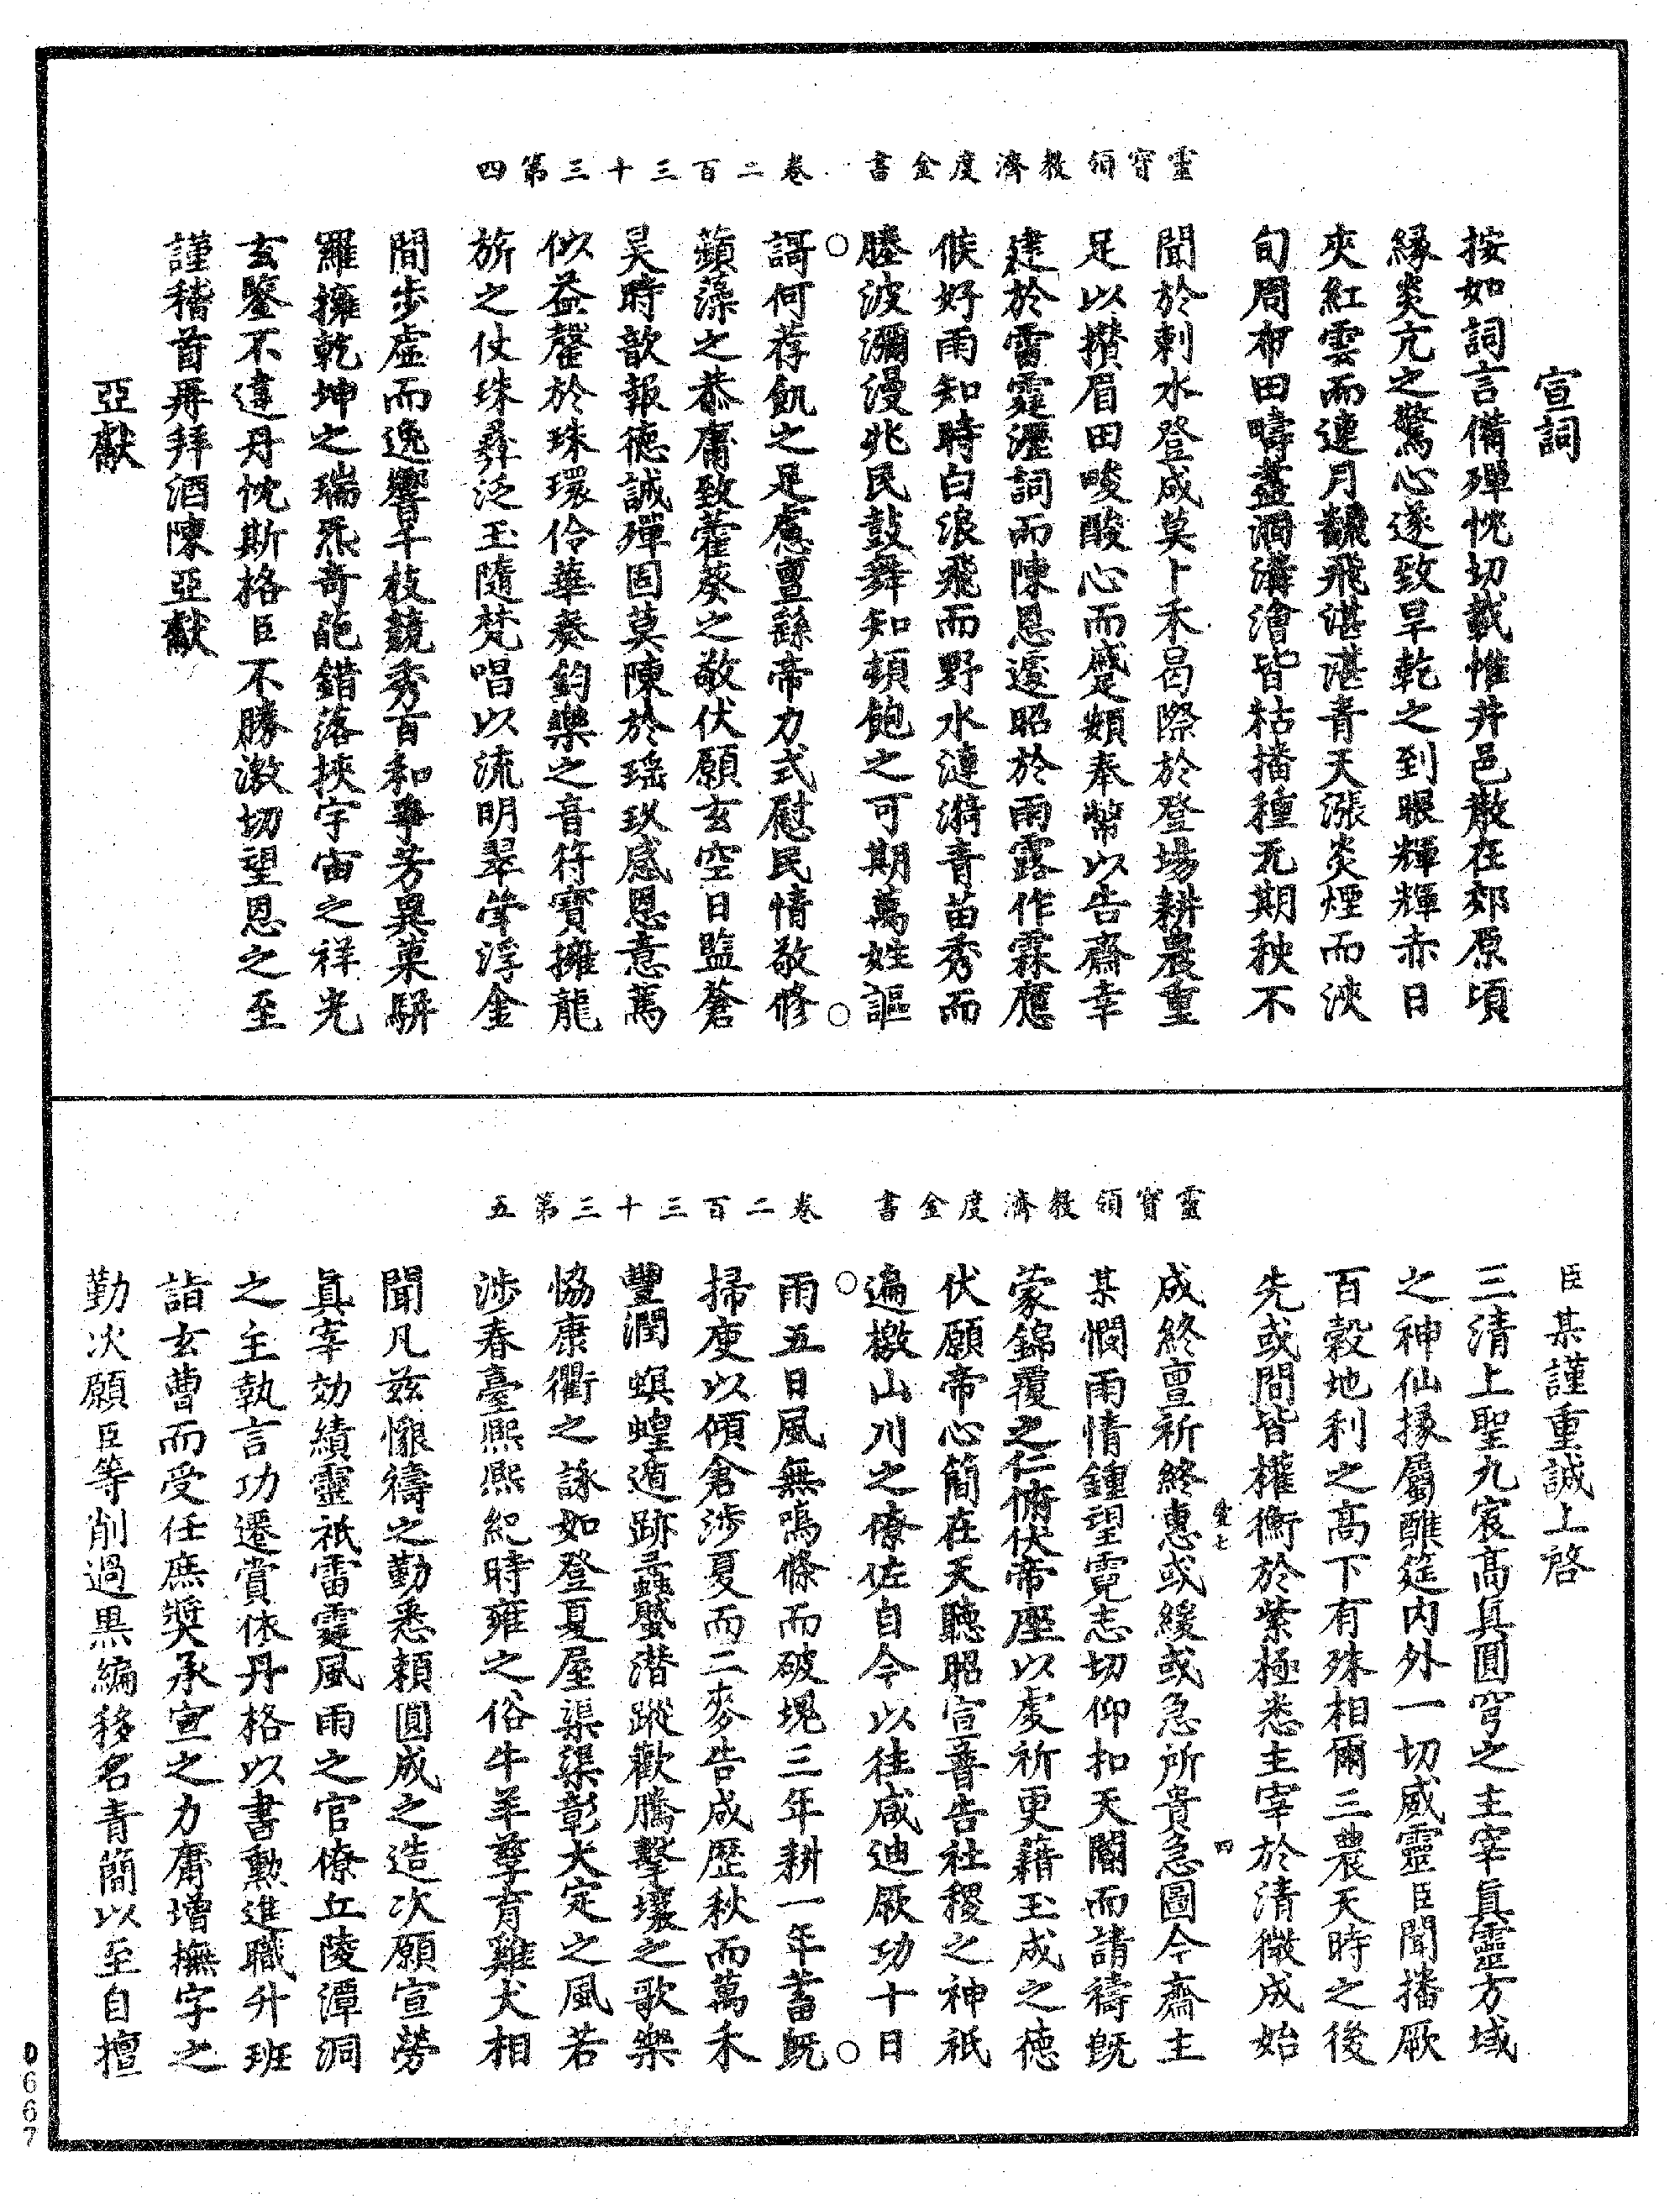 靈寶領教濟度金書 卷二百三十三第四
宣詞
按如詞言備殫忱切載惟井邑散在郊原頃
緣炎亢之驚心遂致旱乾之到眼輝輝赤日
夾紅雲而連月飜飛湛湛青天漲炎煙而浹
旬周布田疇盡涸溝澮皆枯播種无期秧不
聞於刺水登成莫卜禾曷際於登場耕農重
足以攢眉田畯酸心而蹙頞奉幣以告齋幸
建於雷霆瀝詞而陳恩遂昭於雨露作霖應
候好雨知時白浪飛而野水漣漪青苗秀而
塍波瀰漫兆民鼓舞知頓飽之可期萬姓謳
謌何荐飢之足慮亶繇帝力式慰民情敬修
蘋藻之恭庸致藿葵之敬伏願玄空日監蒼
昊時歆報德誠殫固莫陳於瑤玖感恩意篤
似益罄於珠環伶華奏鈞樂之音符寶擁龍
旂之仗珠彛泛玉隨梵唱以流明翠斚浮金
間步虛而逸響千枝競秀百和爭芳異菓駢
羅擁乾坤之瑞炁奇葩錯落挾宇宙之祥光
玄鑒不違丹忱斯格臣不勝激切望恩之至
謹稽首再拜酒陳亞獻
亞獻
靈寶領教濟度金書 卷二百三十三第五
臣某謹重誠上啓
三清上聖九宸高眞圓穹之主宰眞靈方域
之神仙掾屬醮筵内外一切威靈臣聞播厥
百穀地利之高下有殊相爾三農天時之後
先或間皆權衡於紫極悉主宰於清微成始
成終亶祈終惠或緩或急所貴急圖今齋主
某憫雨情鍾望霓志切仰扣天閽而請禱旣
蒙錦覆之仁俯伏帝座以虔祈更藉玉成之德
伏願帝心簡在天聽昭宣普告社稷之神祇
遍檄山川之僚佐自今以往咸迪厥功十日
雨五日風無鳴條而破塊三年耕一年蓄旣
掃庾以傾倉渉夏而二麥告成歷秋而萬禾
豐潤螟蝗遁跡蟊䘍潛蹤歡騰擊壤之歌樂
恊康衢之詠如登夏屋渠渠彰大定之風若
渉春臺熙熙紀時雍之俗牛羊孳育雞犬相
聞凡茲懇禱之勤悉頼圓成之造次願宣勞
眞宰効績靈祇雷霆風雨之官僚丘陵潭洞
之主執言功遷賞依丹格以書勲進職升班
詣玄曹而受任庶奬承宣之力庸增撫字之
勤次願臣等削過黒編移名青簡以至自壇
四
0667